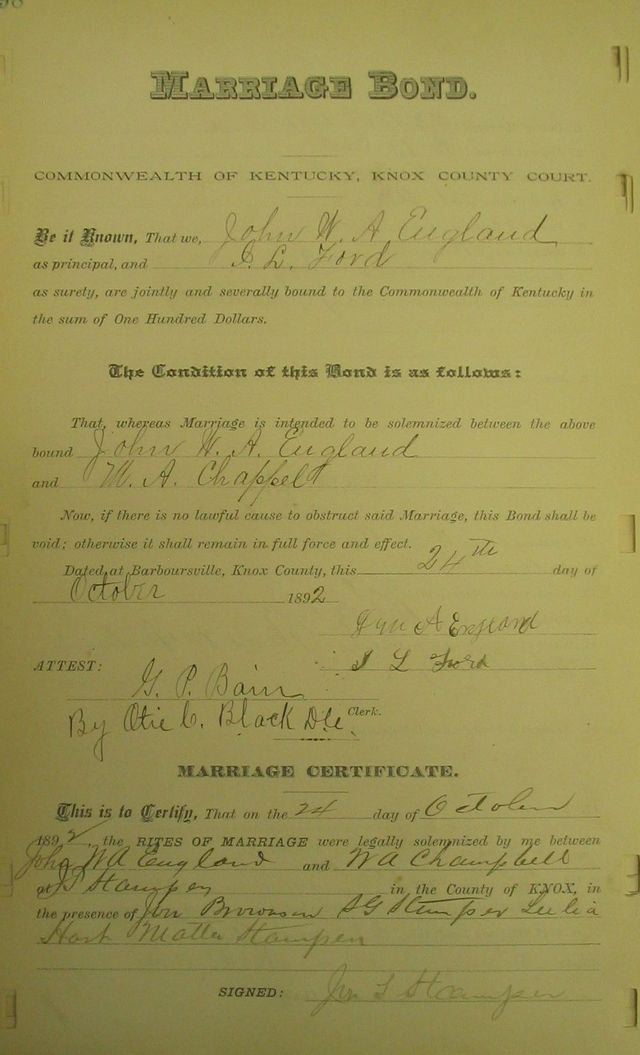 MARRIAGE BOND.
COMMONWEALTH OF KENTUCKY, KNOX COUNTY COURT.
Be it Known, That we, John W. A England
as principal, and L. Ford
as surety, are jointly and severally bound to the Commonwealth of Kentucky in
the sum of One Hundred Dollars.
The Condition of this Bond is as follows:
That, whereas Marriage is intended to be solemnized between the above
bound John W. A. England
and A. Chappell
Now, if there is no lawful cause to obstruct said Marriage, this Bond shall be
void; otherwise it shall remain in full force and effect.
Dated at Barboursville, Knox County, this 24th day of
October 1892
A England
L Ford
ATTEST:
G. P. Bain
By Otie C. Black D.C. Clerk.
MARRIAGE CERTIFICATE.
This is to Certify, That on the 24 day of October
1892, the RITES OF MARRIAGE were legally solemnized by me between
John W A England and W A Champbell
at Stamper in the County of KNOX, in
the presence of S G Stamper
Stamper
SIGNED: Stamper